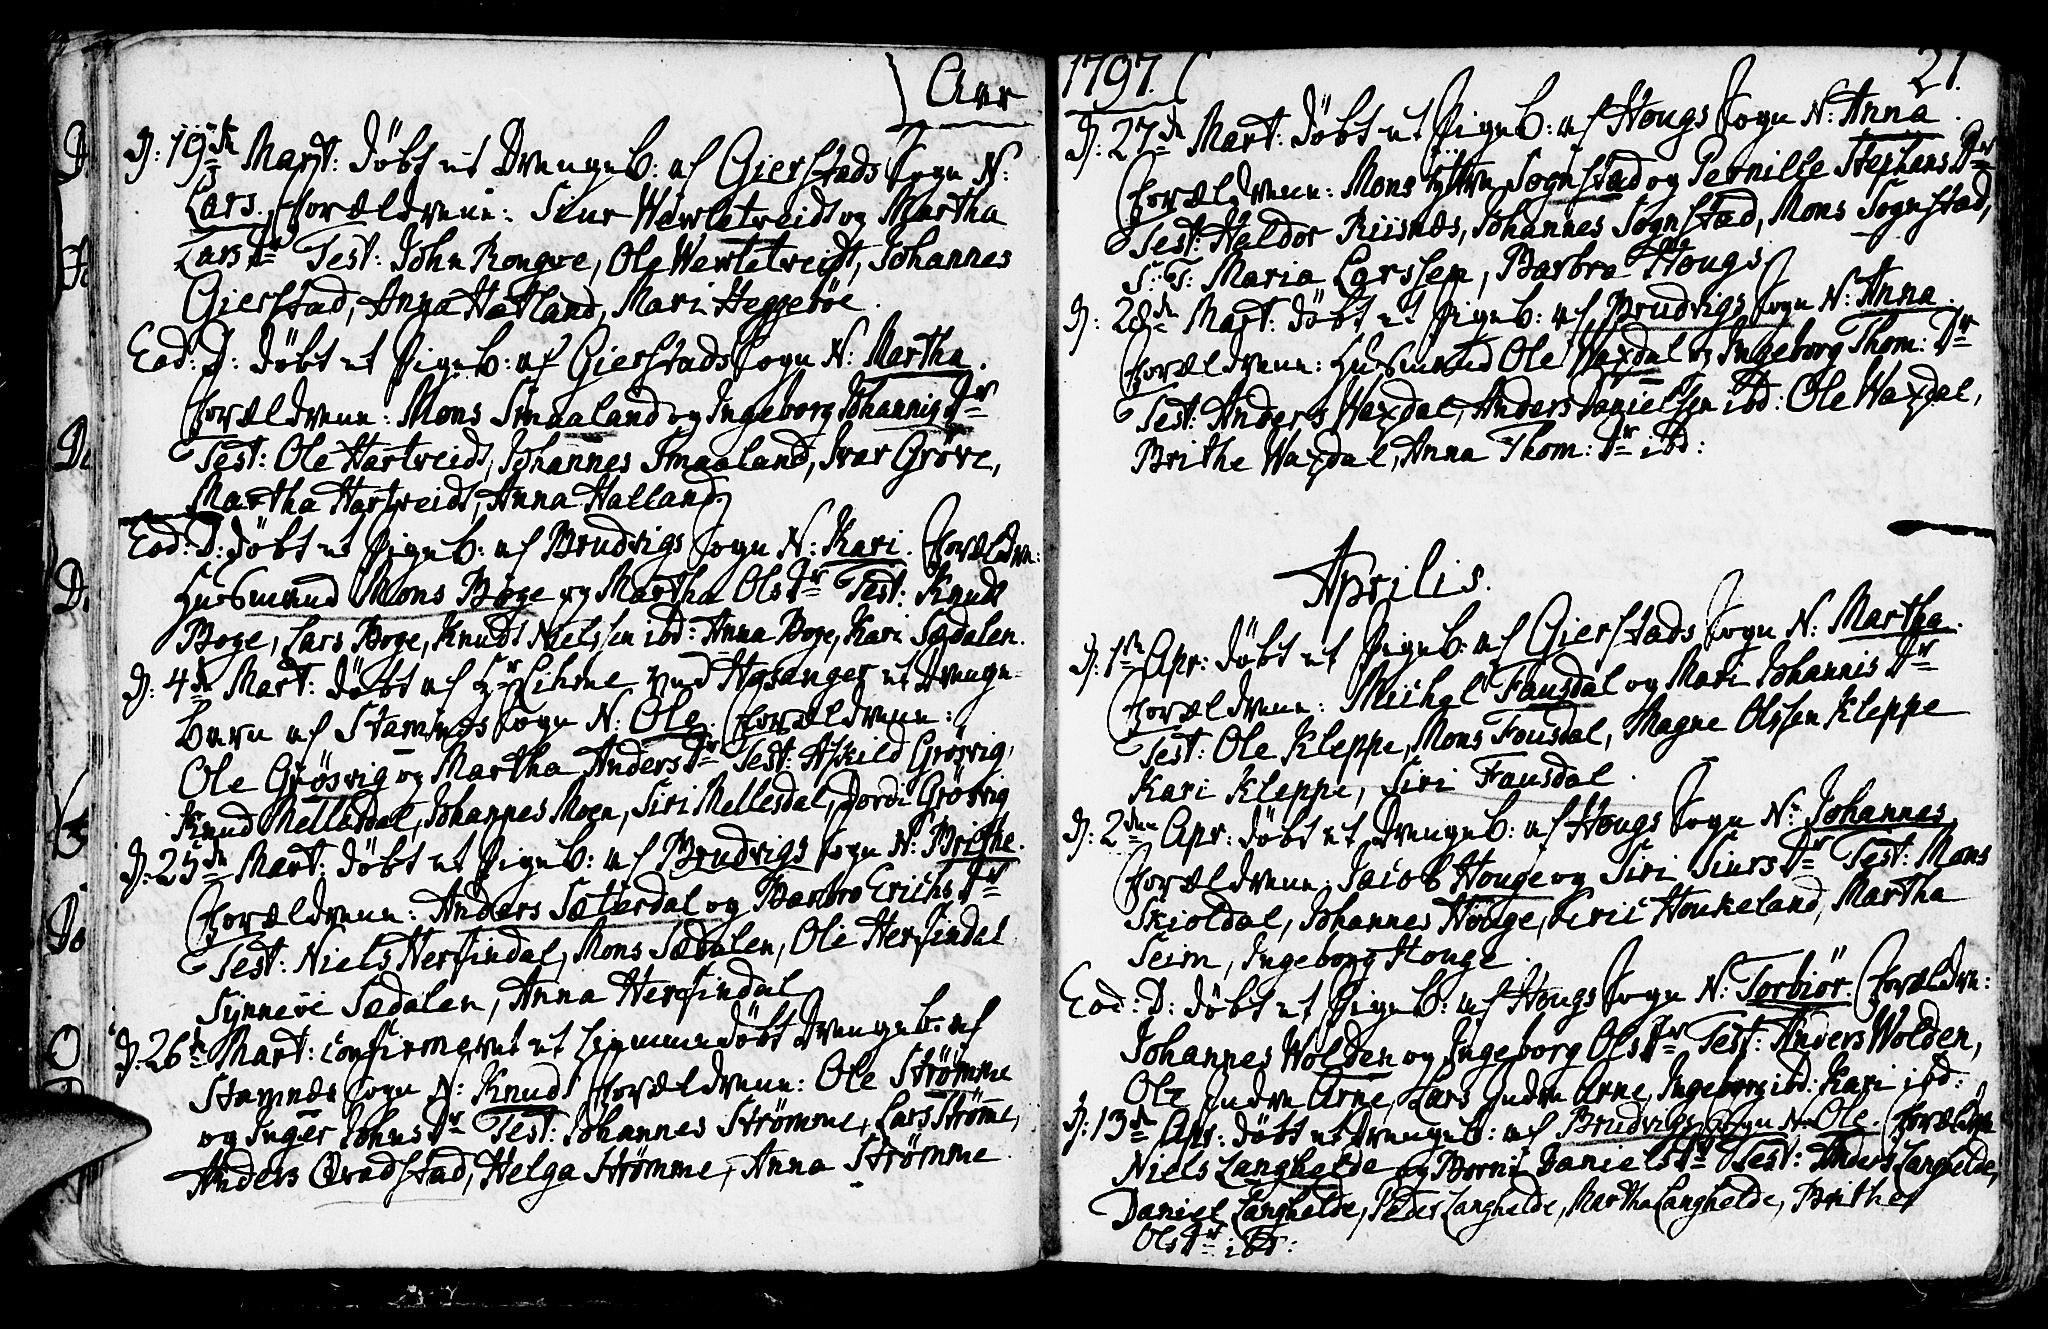 Aar
D: 19de Mart: döbt et Drengeb: af Gierstads Sogn N:
Lars. Forældrene: Siur Hartvedt og Martha
Lars Dr Test: John Rongve, Ole Hartvedt, Johannes
Gierstad, Anna Hatland, Mari Heggetöe.
Eod: D: döbt et Pigeb: af Gierstads Sogn N: Martha.
Forældrene: Mons Smaaland og Ingeborg Johannis Dr
Test: Ole Hartveidt, Johannes Smaaland, Ivar Gröve,
Martha Hartveidt, Anna Halland.
Eod: D: döbt et Pigeb: af Brudvigs Sogn N: Kari. Forældrene:
Husmand Mons Boge og Martha Ols Dr Test: Knud
Boge, Lars Boge, Knudt Nielssen ibd: Anna Boge, Kari Sædalen.
D: 4de Mart: döbt af Hr Hihme ved Hosanger et Drenge-
barn af Stamnæs Sogn N: Ole. Forældrene:
Ole Grösvig og Martha Anders Dr Test: Askild Grösvig,
Knud Mellesdal, Johannes Moen, Siri Mellesdal, Dordi Grösvig
D: 25de Mart: döbt et Pigeb: af Brudvigs Sogn N: Brithe.
Forældrene: Anders Sæterdal og Barbro Erichs Dr
Test: Niels Herfindal, Mons Sædalen, Ole Herfindal
Synneve Sædalen, Anna Herfindal
D: 26de Mart: confirmeret et hjemmedöbt Drengeb: af
Stamnæs Sogn N: Knud Forældrene: Ole Strömme
og Inger Johns Dr Test: Johannes Strömme, Lars Ströme,
Anders Qvadstad, Helga Strömme, Anna Strömme
1797. 21.
D: 27de Mart: döbt et Pigeb: af Hougs Sogn N: Anna.
Forældrene: Mons Sognstad og Pernille Stephens Dr
Test: Haldor Riisnes, Johannes Sognstad, Mons Sognstad,
S: T: Maria Larssen, Barbro Hougs
D: 28de Mart: döbt et Pigeb: af Brudvigs Sogn N: Anna.
Forældrene: Husmand Ole Waxdal og Ingeborg Thom: Dr
Test: Anders Waxdal, Anders Danielsen ibd: Ole Waxdal,
Brithe Waxdal, Anna Thom: Dr ibd:
Aprilis.
D: 1te Apr: döbt et Pigeb: af Gierstads Sogn N: Martha.
Forældrene: Michel Fausdal og Mari Johannis Dr
Test: Ole Kleppe, Mons Fousdal, Magne Olssen Kleppe
Kari Kleppe, Siri Fausdal.
D: 2den Apr: döbt et Drengeb: af Hougs Sogn N: Johannes,
Forældrene: Jacob Houge og Siri Siurs Dr Test: Mons
Skioldal, Johannes Houge, Siric Houkeland, Martha
Seim, Ingeborg Houge.
Eod: D: döbt et Pigeb: af Hougs Sogn N: Torbiör. Forældrene:
Johannes Wolden og Ingeborg Ols Dr Test: Anders Wolden,
Ole Indre Arne, Lars Indre Arne, Ingeborg ibd: Kari ibd:
D: 13de Apr: döbt et Drengeb: af Brudvigs Sogn N: Ole. Forældrene
Niels Langhelde og Bornil Daniels Dr Test: Anders Langhelde,
Daniel Langhelde, Peder Langhelde, Martha Langhelde, Brithe
Ols Dr: ibd: